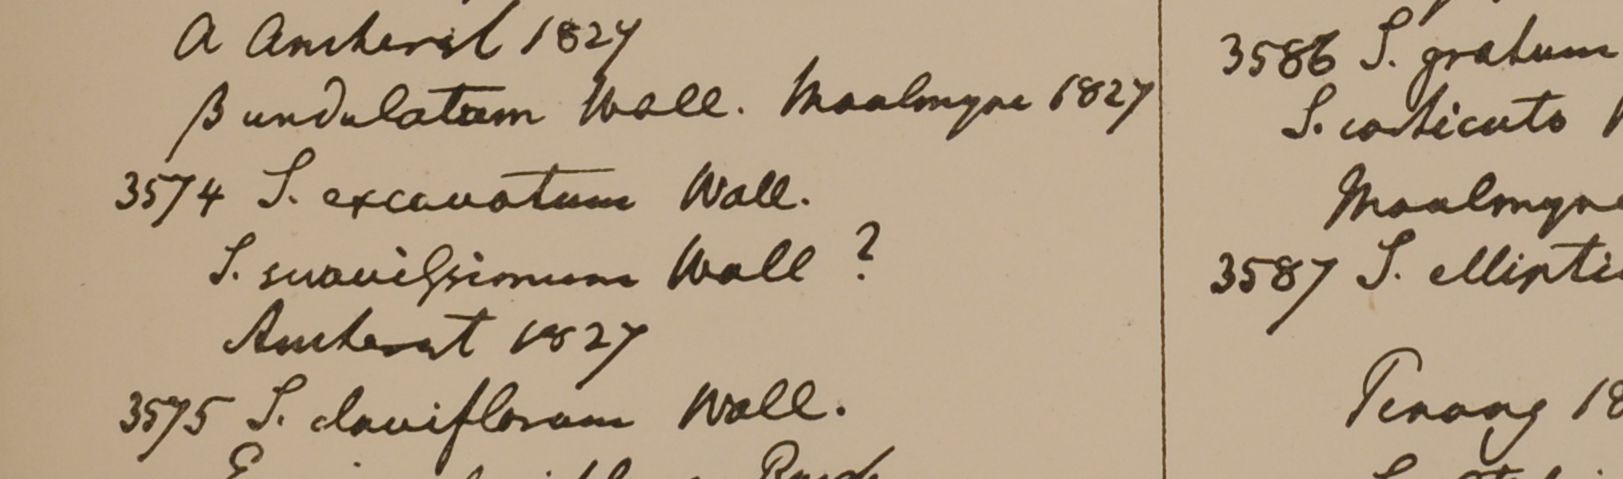 A Amherst 1827
β undulatum Wall. Moalmyne 1827
3574 S. excavatum Wall.
S. suavissimum Wall ?
Amherst 1827
3575 S. claviflorum Wall.
3586 S. gratum
S. corticuto
Moalmyne
3587 S. ellipti
Penang 18